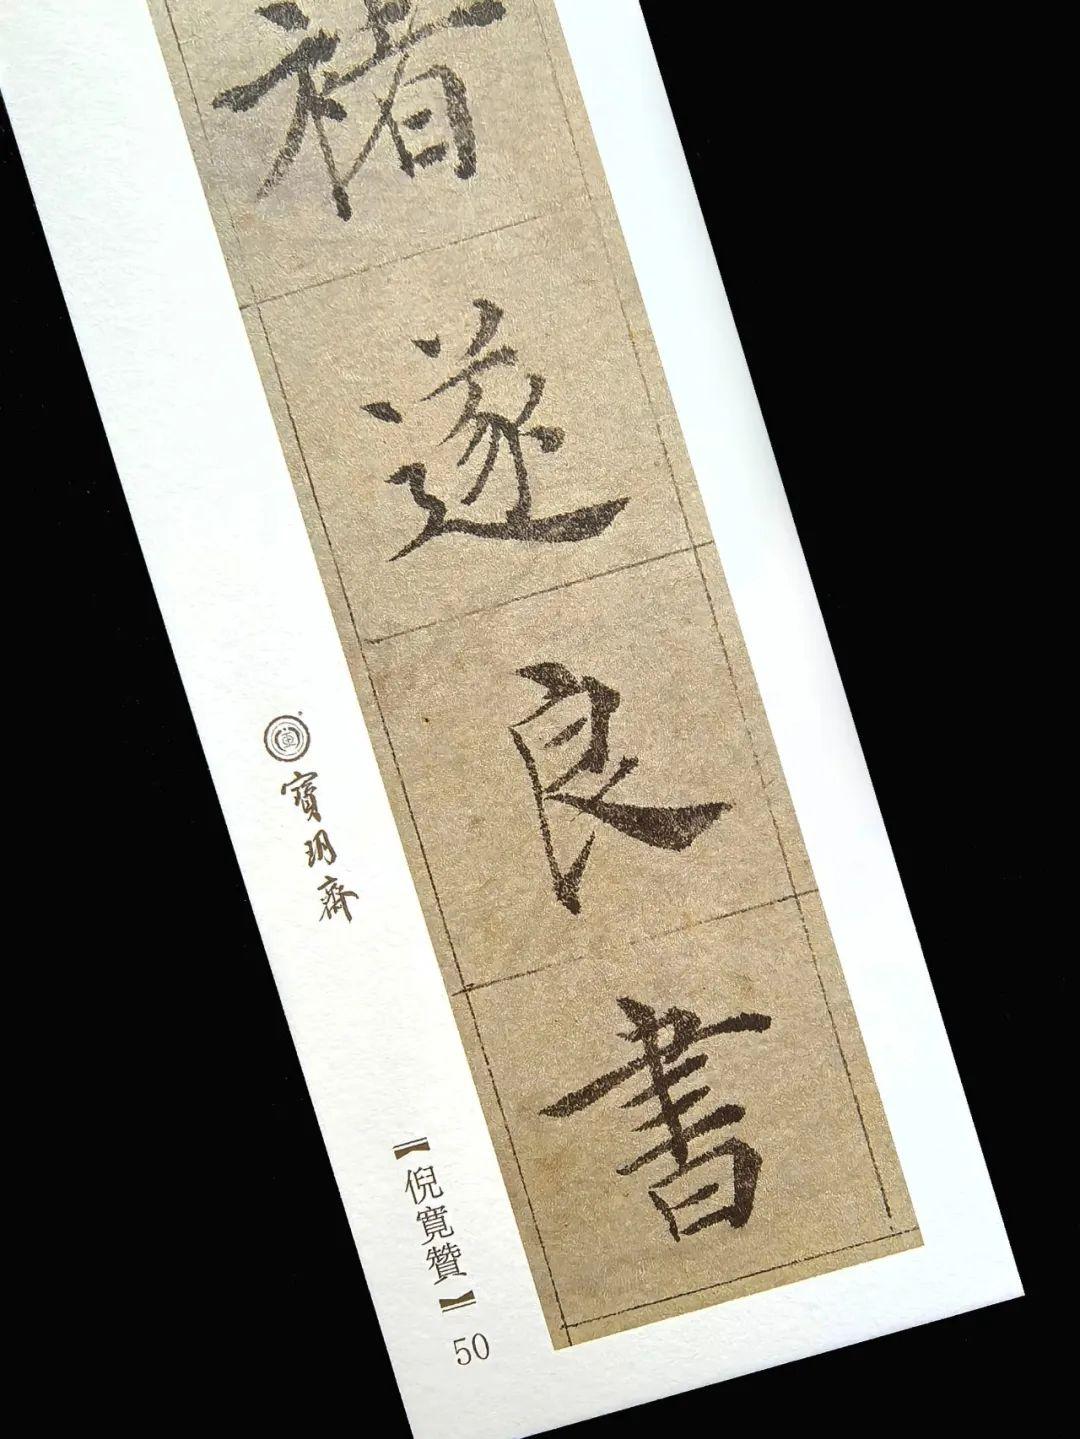 褚遂良書
寶玥齋
【倪寬贊】
50